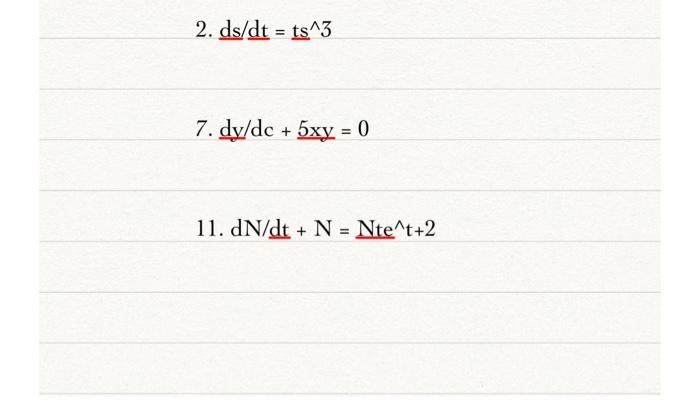 2. ds/dt = ts^3
7. dy/dc + 5xy = 0
11. dN/dt + N = Nte^t+2